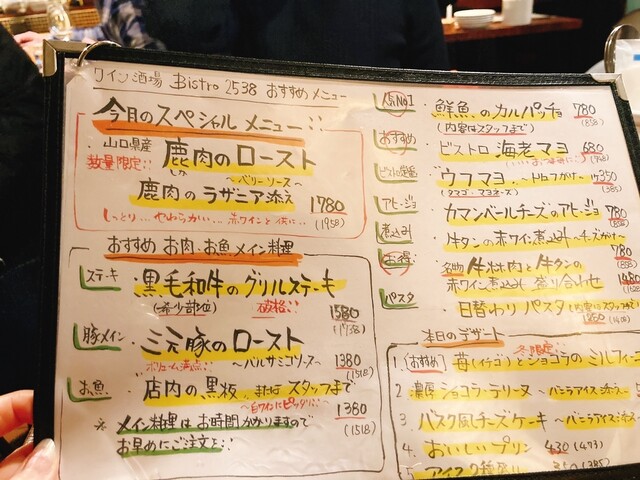 ワイン酒場 Bistro 2538 おすすめメニュー
今月のスペシャルメニュー
山口県産
数量限定!! 鹿肉のロースト
しか
～ベリーソース～
鹿肉のラザニア添え
1780
(1958)
しっとり…やわらかい…赤ワインと供に…
おすすめ お肉・お魚メイン料理
ステーキ
黒毛和牛のグリルステーキ
(希少部位) 破格!!
1580
(1738)
豚メイン
三元豚のロースト
ボリューム満点!! ～バルサミコソース～
1380
(1518)
お魚
店内の黒板、またはスタッフまで
～白ワインにピッタリ!!
1380
(1518)
※ メイン料理はお時間かかりますので
お早めにご注文を!!
人気No1
鮮魚のカルパッチョ 780
(内容はスタッフまで) (858)
おすすめ
ビストロ 海老マヨ 680
(748)
ビストロ定番
ウフマヨ 350
(タマゴ・マヨネーズ) (385)
アヒージョ
カマンベールチーズのアヒージョ 780
(858)
煮込み
牛タンの赤ワイン煮込み
780
(858)
名物 牛ホホ肉と牛タンの
赤ワイン煮込み 盛り合わせ
1480
パスタ
日替わりパスタ
本日のデザート
冬限定!!
1. (おすすめ) 苺(イチゴ)とショコラのミルフィー
2. 濃厚 ショコラ・テリーヌ ～バニラアイス添え～
3. バスク風チーズケーキ ～バニラアイス添
4. おいしいプリン 430 (473)
5. アイス2種盛り 350 (385)